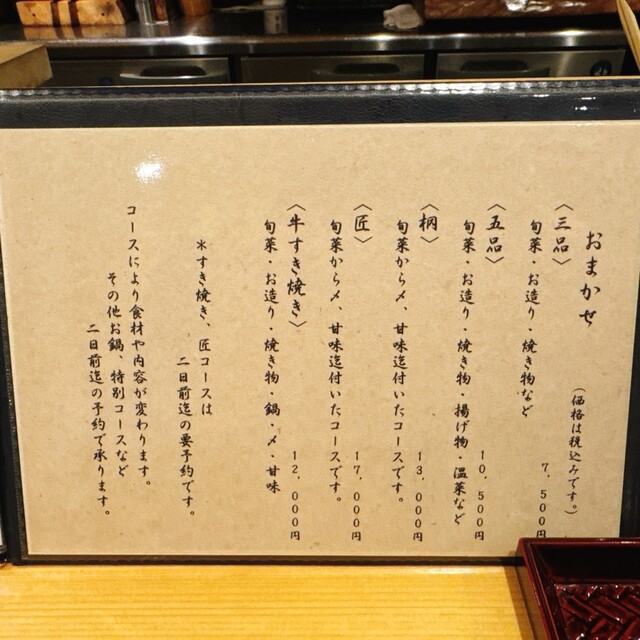 おまかせ
（価格は税込みです。）
〈三品〉
旬菜・お造り・焼き物など
7,500円
〈五品〉
旬菜・お造り・焼き物・揚げ物・温菜など
10,500円
〈柄〉
旬菜から〆、甘味迄付いたコースです。
13,000円
〈匠〉
旬菜から〆、甘味迄付いたコースです。
17,000円
〈牛すき焼き〉
旬菜・お造り・焼き物・鍋・〆・甘味
12,000円
＊すき焼き、匠コースは
二日前迄の要予約です。
コースにより食材や内容が変わります。
その他お鍋、特別コースなど
二日前迄の予約で承ります。